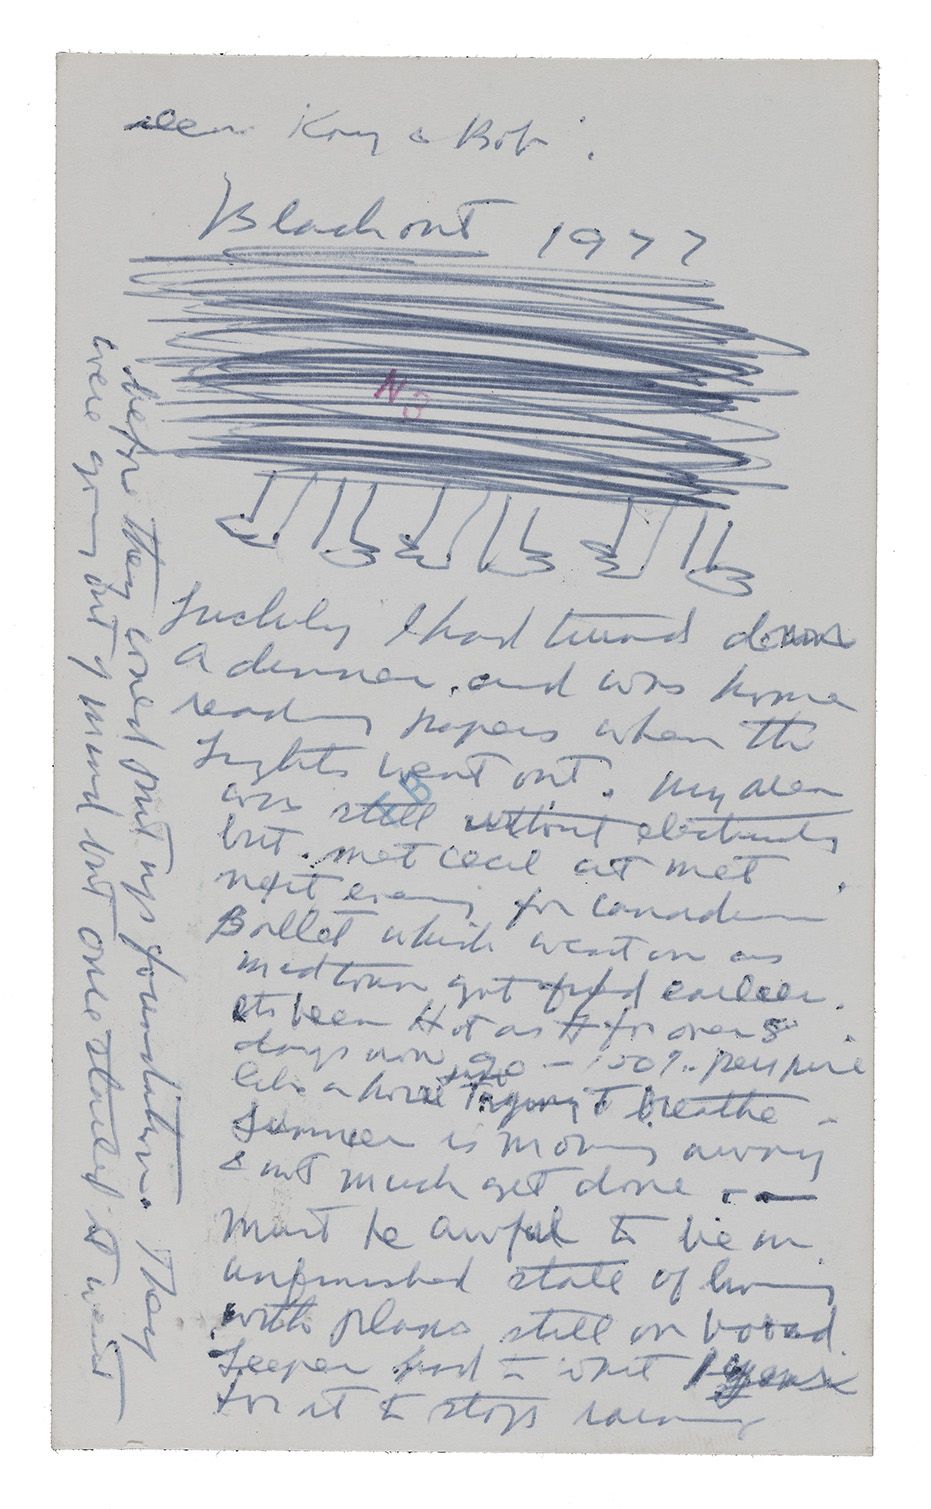 Dear Kay & Bob:
Blackout 1977
NB
Luckily I had turned down
a dinner, and was home
reading papers when the
Lights went out. My area
was still without electricity
but. met Cecil at met
next evening for Canadian
Ballet which went on as
midtown got fixed earlier.
Its been Hot as H for over 8
days now 90 – 100%. perspire
like a horse trying to breathe –
Summer is moving away
& not much get done – –
Must be awful to be in
unfinished state of living
with plans still on board.
Leeper had to wait 1 year
for it to stop raining
before they could put up foundation. They
were going out of mind but once started it went